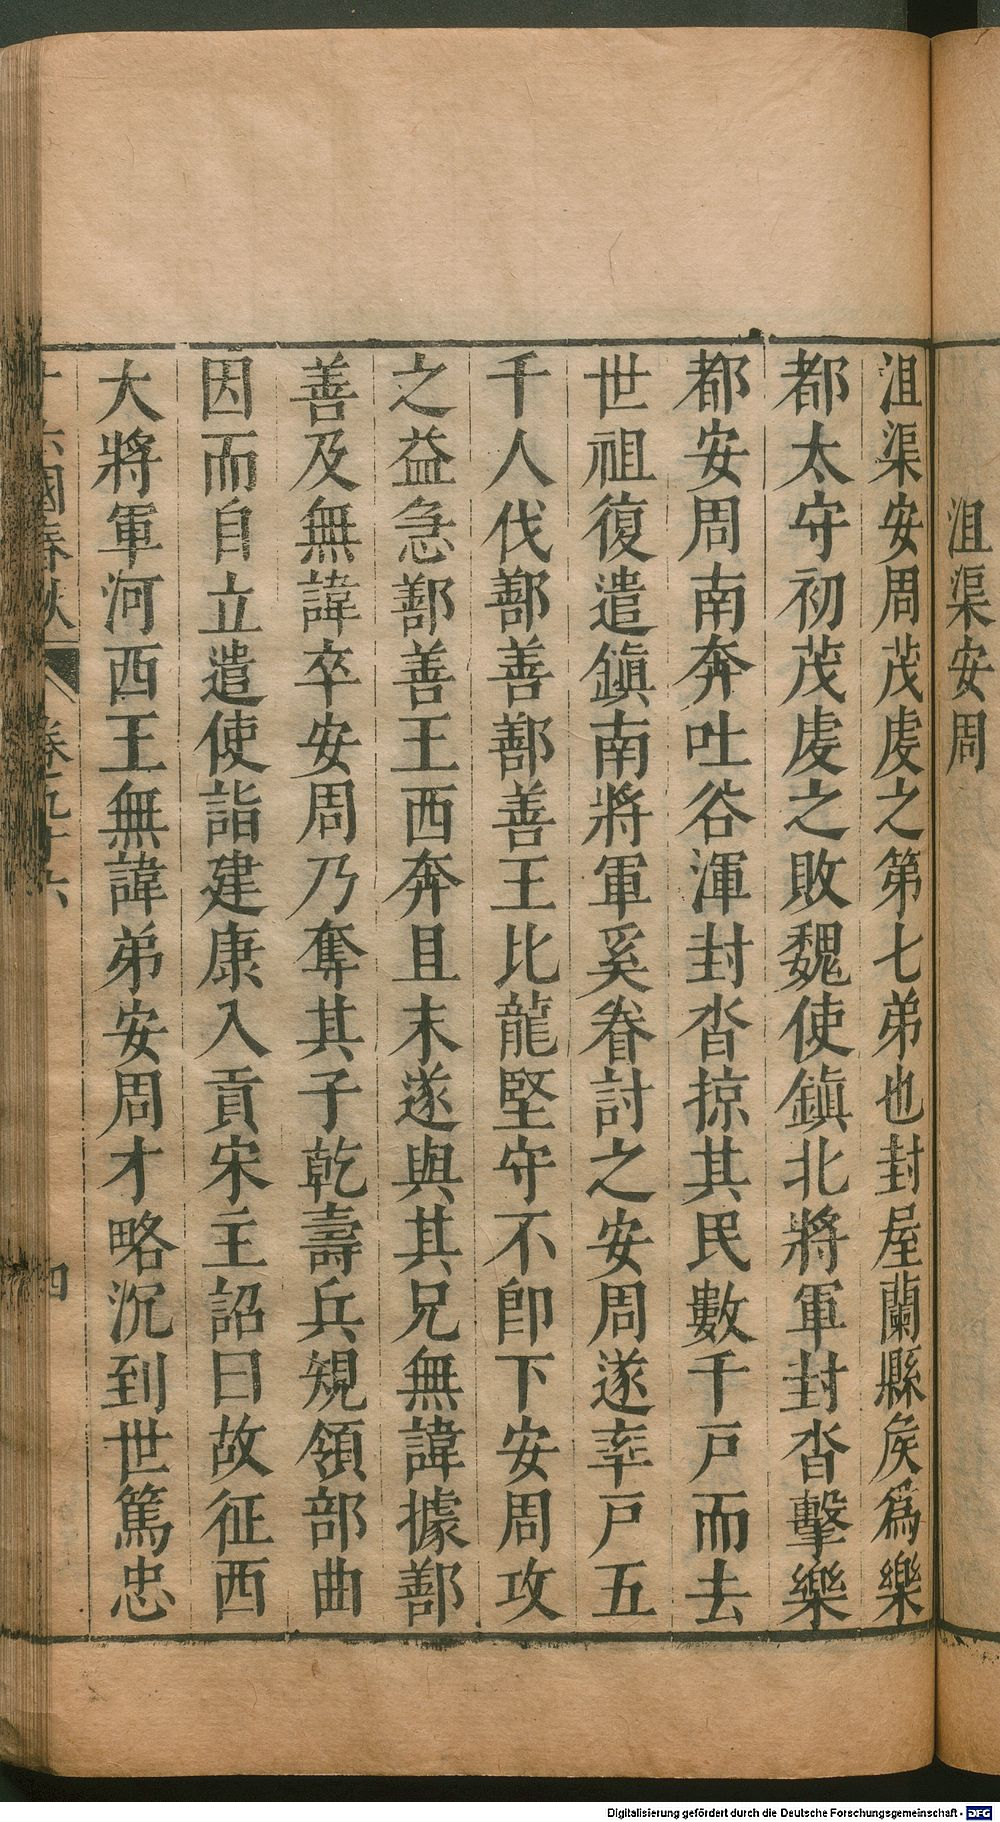 沮渠安周
沮渠安周茂虔之第七弟也封屋蘭縣矦爲樂
都太守初茂虔之敗魏使鎭北將軍封沓擊樂
都安周南奔吐谷渾封沓掠其民數千戸而去
世祖復遣鎭南將軍奚眷討之安周遂率戸五
千人伐鄯善鄯善王比龍堅守不卽下安周攻
之益急鄯善王西奔且末遂與其兄無諱據鄯
善及無諱卒安周乃奪其子乾壽兵規領部曲
因而自立遣使詣建康入貢宋主詔曰故征西
大將軍河西王無諱弟安周才略沉到世篤忠
十六國春秋 卷九十六 四
Digitalisierung gefördert durch die Deutsche Forschungsgemeinschaft - DFG